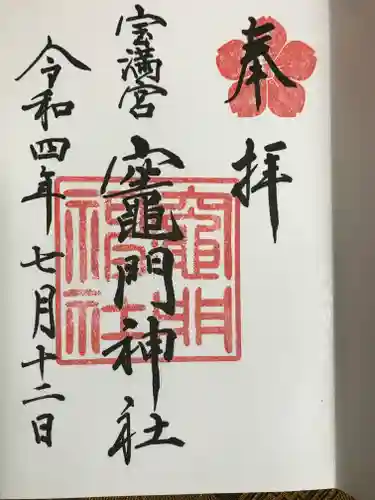 奉拝
宝満宮
竈門神社
令和四年七月十二日
竈門
神社